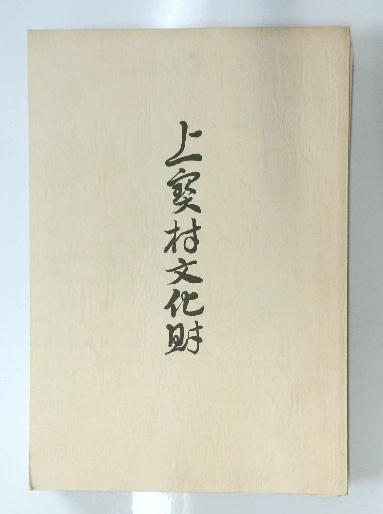 上寳村文化財